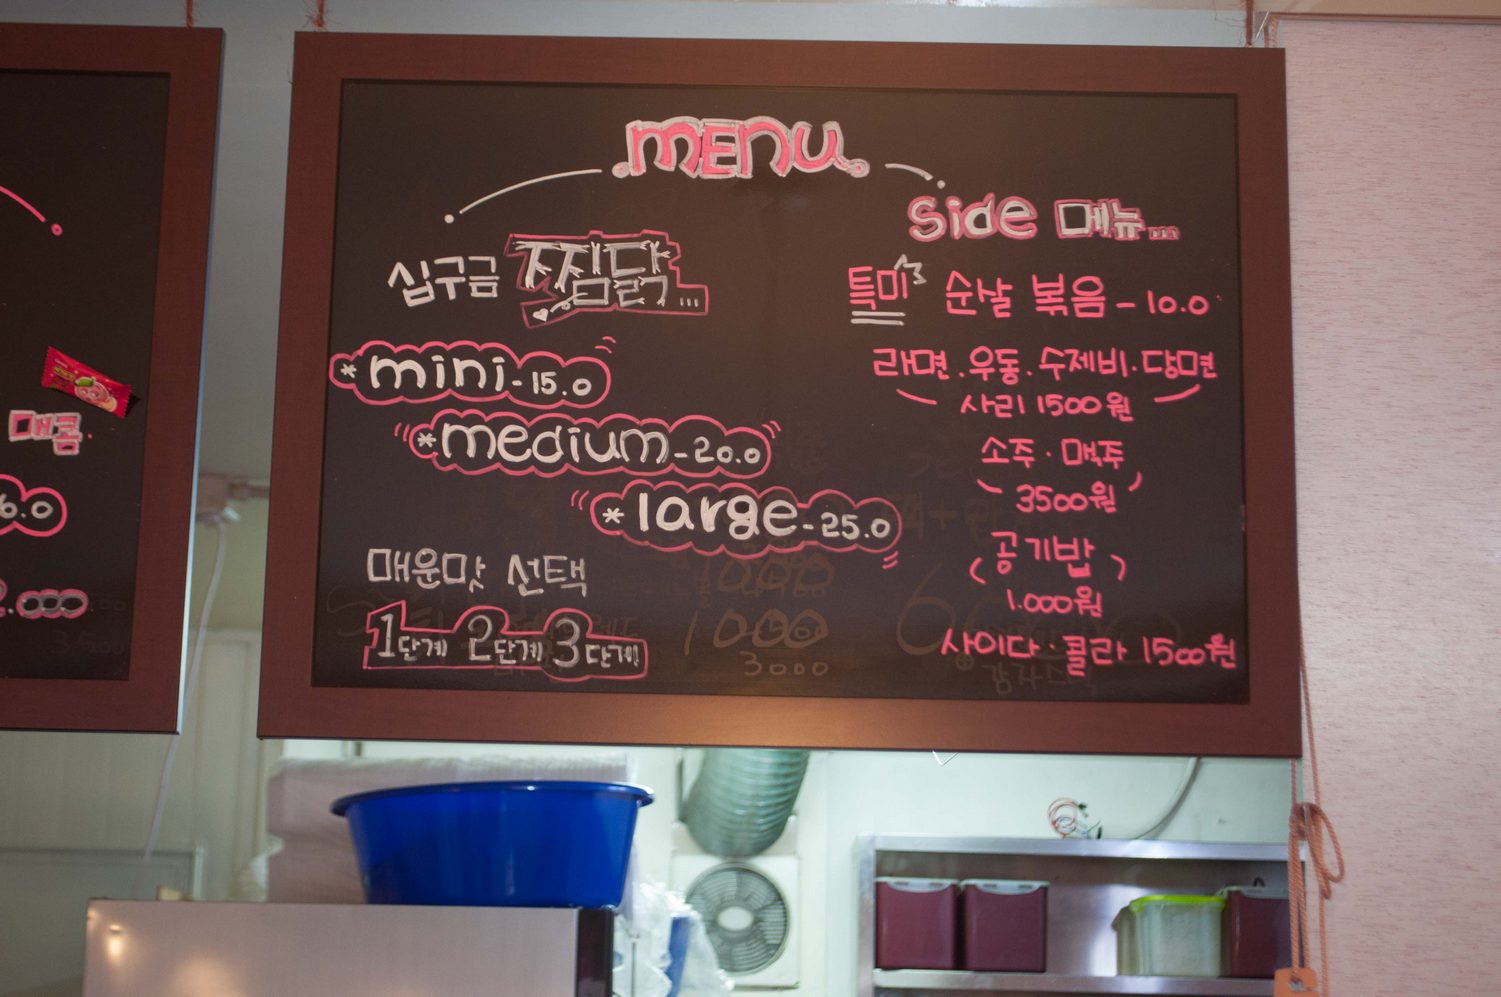 MENU
십구금 찜닭...
* mini - 15.0
* medium - 20.0
* large - 25.0
매운맛 선택
1단계 2단계 3단계
side 메뉴...
특미 순살 볶음 - 10.0
라면. 우동. 수제비. 당면
사리 1500원
소주 · 맥주
3500원
공기밥
1.000원
사이다 · 콜라 1500원
매콤
6.0
.000
1000
3000